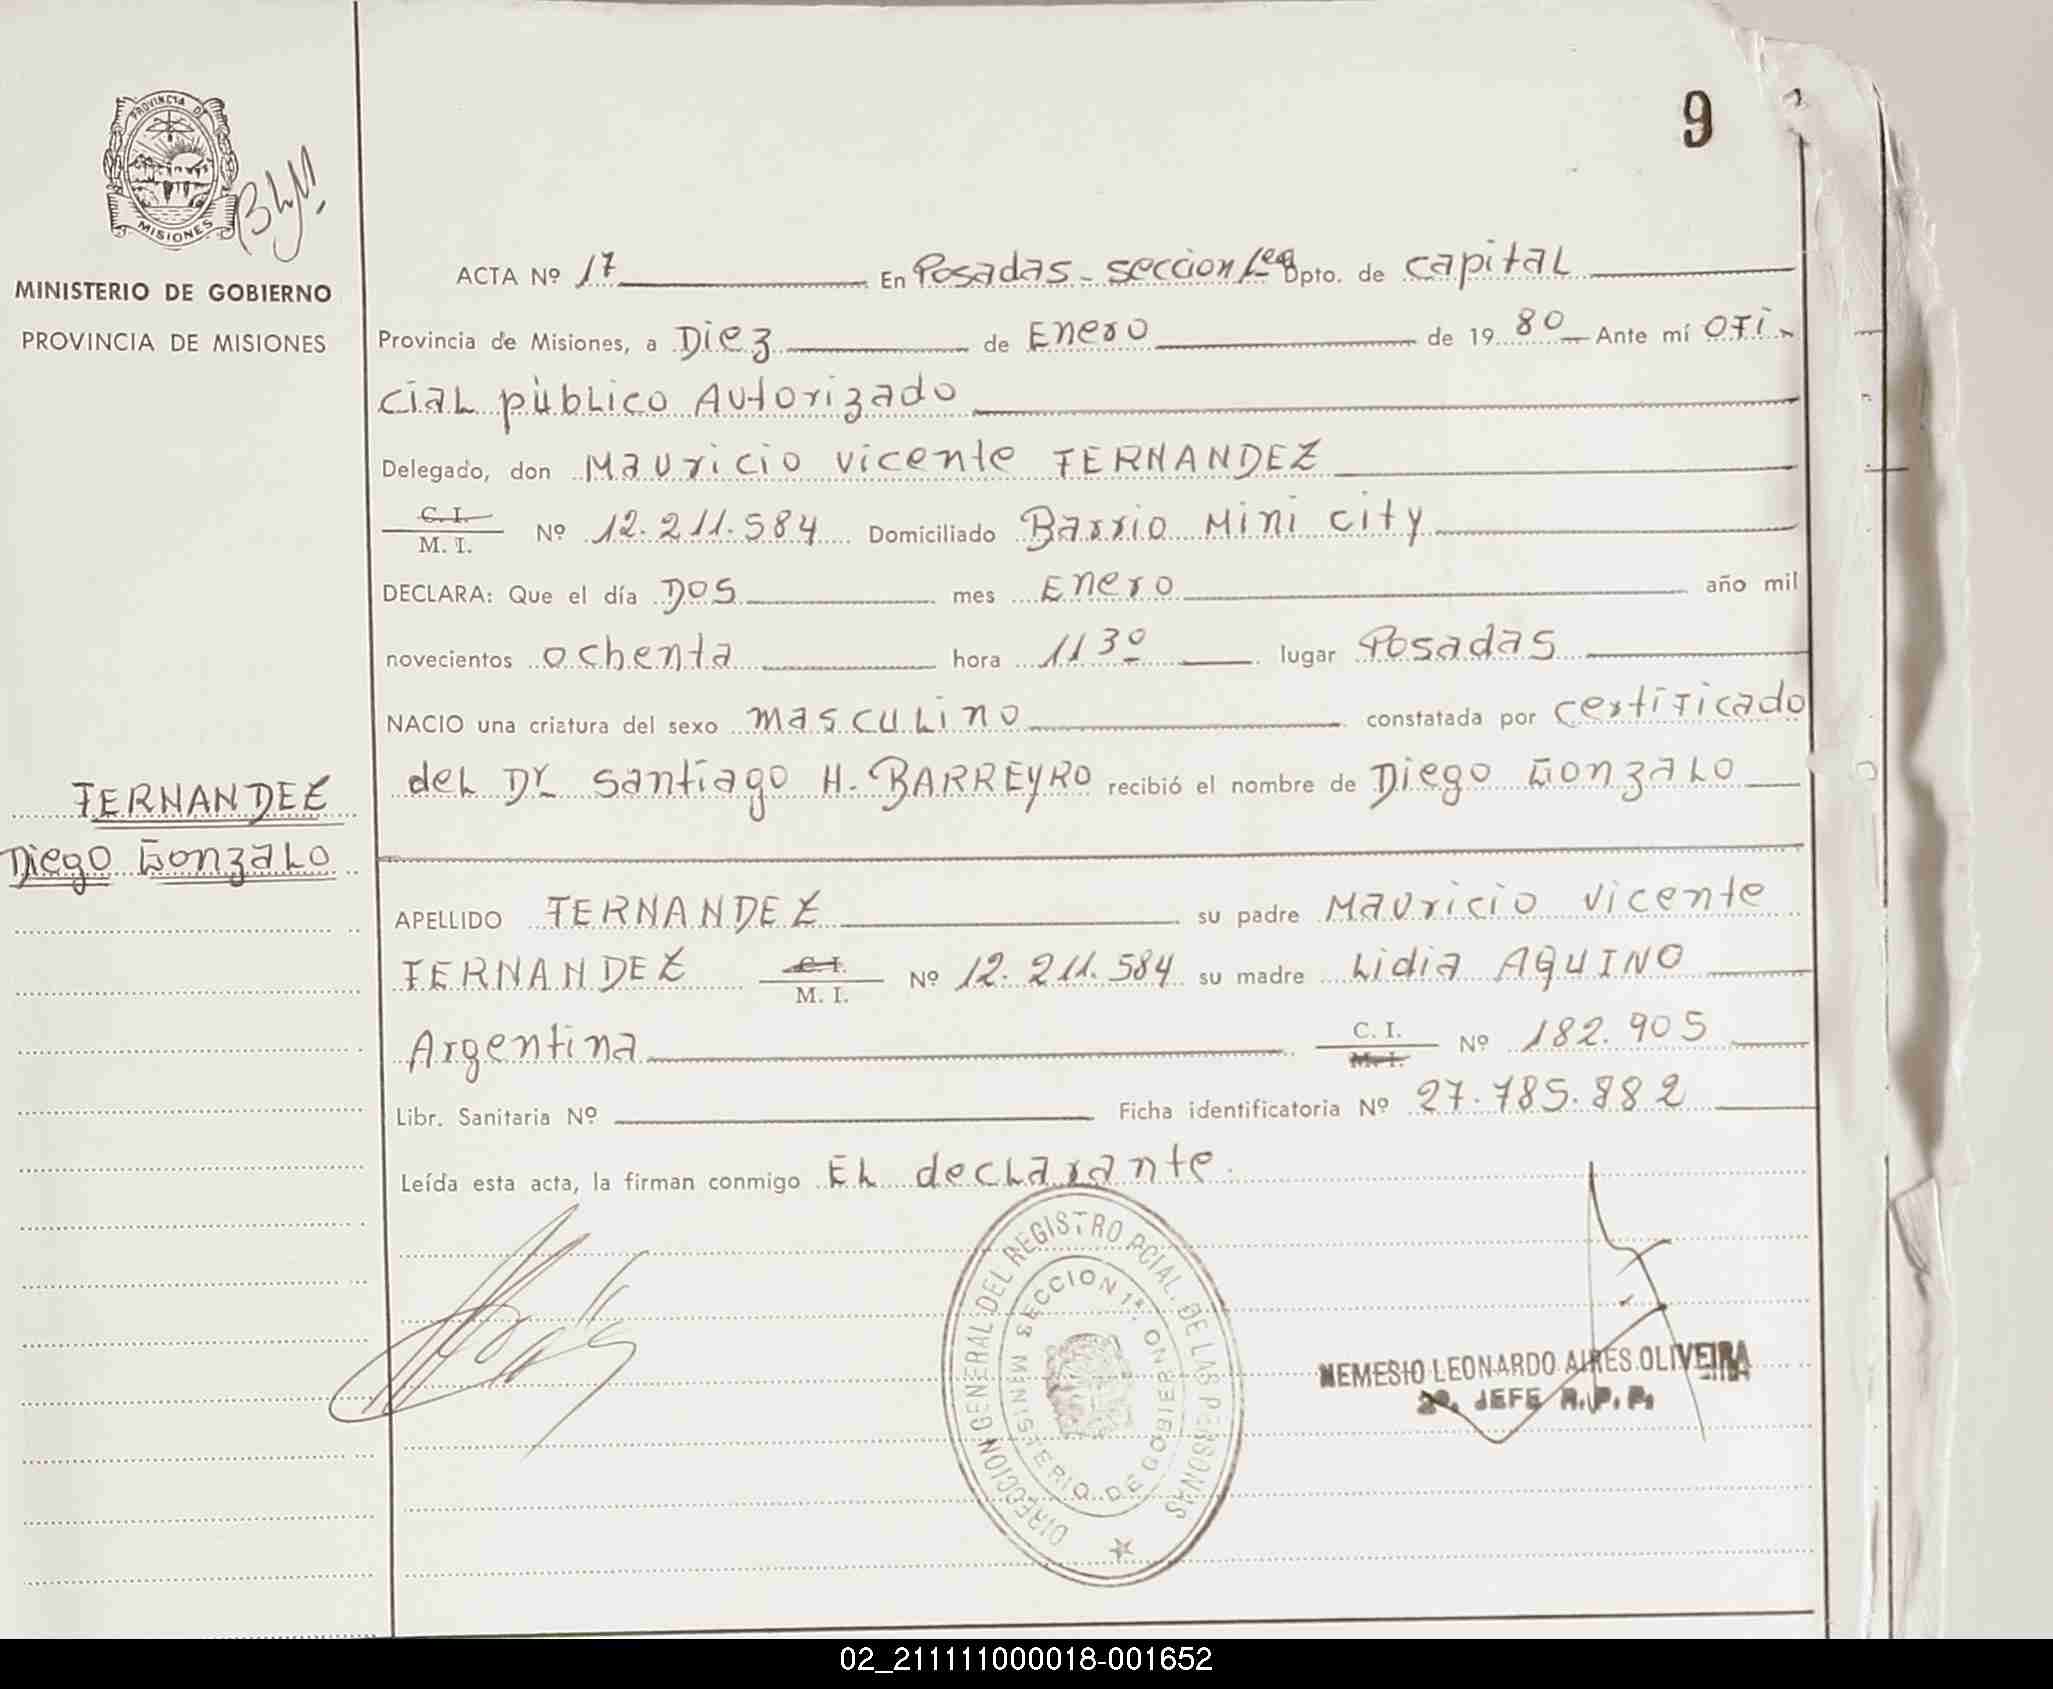 9
PROVINCIA DE
MISIONES
MINISTERIO DE GOBIERNO
PROVINCIA DE MISIONES
ACTA Nº 17 En Posadas - seccion 1era Dpto. de capital
Provincia de Misiones, a Diez de Enero de 19 80 Ante mí ofi-
cial pùblico Autorizado
Delegado, don Mauricio vicente FERNANDEZ
C. I.
M. I. Nº 12.211.584 Domiciliado Barrio Mini city
DECLARA: Que el día Dos mes Enero año mil
novecientos ochenta hora 11 30 lugar Posadas
NACIO una criatura del sexo masculino constatada por certificado
del Dr santiago H. BARREYRO recibió el nombre de Diego Gonzalo
FERNANDEZ
Diego Gonzalo
APELLIDO FERNANDEZ su padre Mauricio vicente
FERNANDEZ C. I.
M. I. Nº 12.211.584 su madre Lidia AQUINO
Argentina C. I.
M. I. Nº 182.905
Libr. Sanitaria Nº Ficha identificatoria Nº 27.785.882
Leída esta acta, la firman conmigo El declarante.
DIRECCION GENERAL DEL REGISTRO PCIAL. DE LAS PERSONAS
MINISTERIO DE GOBIERNO
SECCION 1ª.
NEMESIO LEONARDO AIRES OLIVEIRA
2º. JEFE R.P.P.
02_211111000018-001652